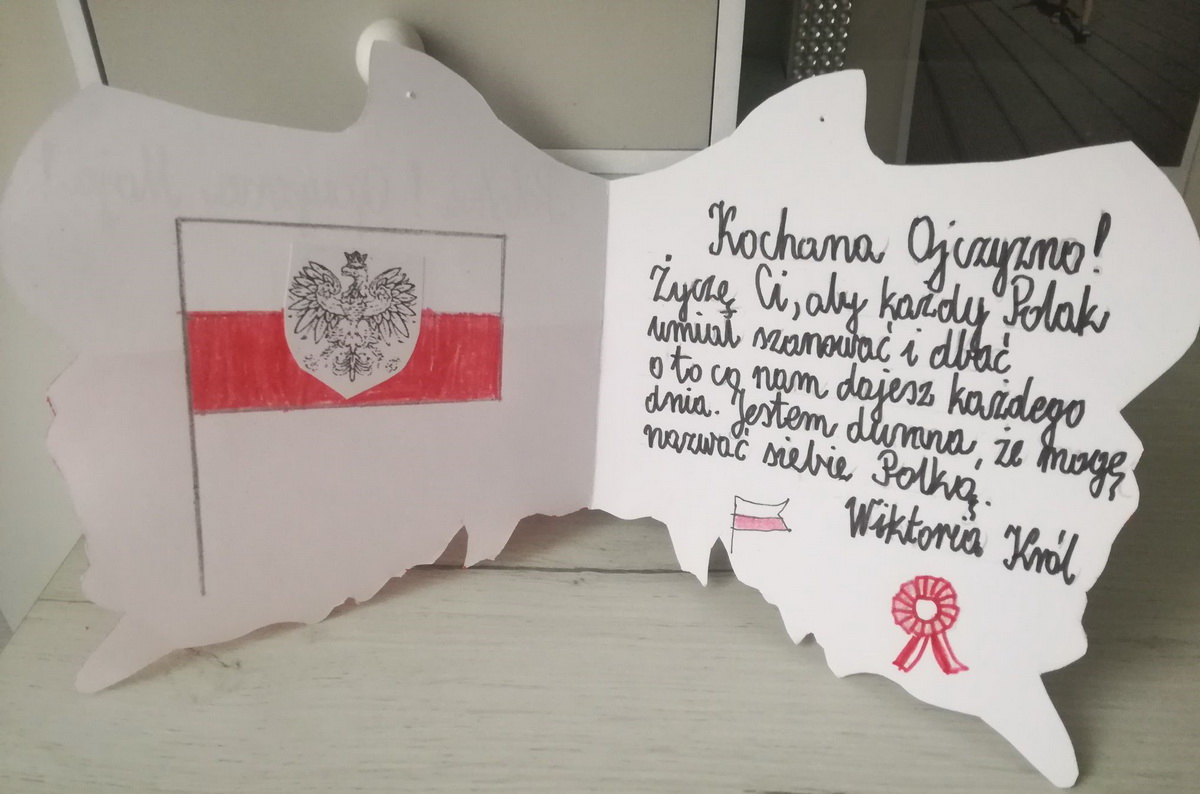 Kochana Ojczyzno!
Życzę Ci, aby każdy Polak
umiał szanować i dbać
o to co nam dajesz każdego
dnia. Jestem dumna, że mogę
nazwać siebie Polką.
Wiktoria Król